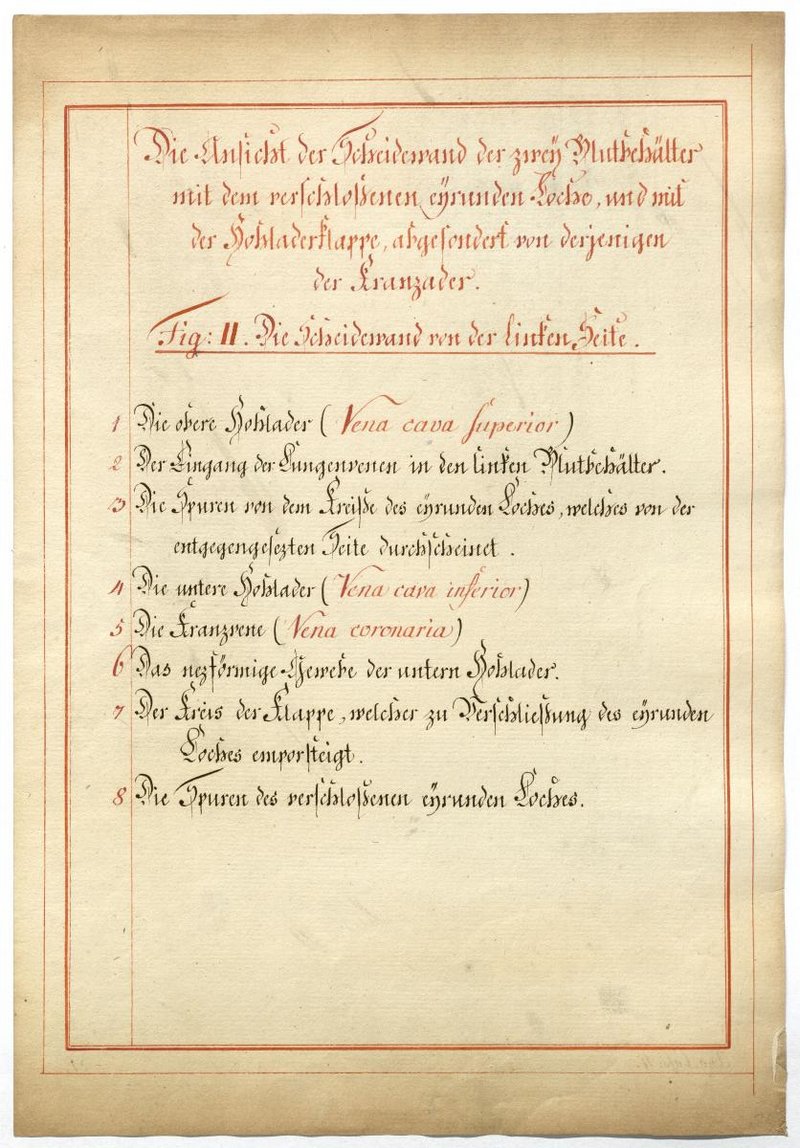 Die Ansicht der Scheidewand der zwey Blutbehälter
mit dem verschloßenen eyrunden Loche, und mit
der Hohladerklappe, abgesondert von derjenigen
der Kranzader.
Fig: II. Die Scheidewand von der linken Seite.
1 Die obere Hohlader (Vena cava superior)
2 Der Eingang der Lungenvenen in den linken Blutbehälter.
3 Die Spuren von dem Kreiße des eyrunden Loches, welches von der
entgegengesezten Seite durchscheinet.
4 Die untere Hohlader (Vena cava inferior)
5 Die Kranzvene (Vena coronaria)
6 Das nezförmige Gewebe der untern Hohlader.
7 Der Kreis der Klappe, welcher zu Verschließung des eyrunden
Loches emporsteigt.
8 Die Spuren des verschloßenen eyrunden Loches.